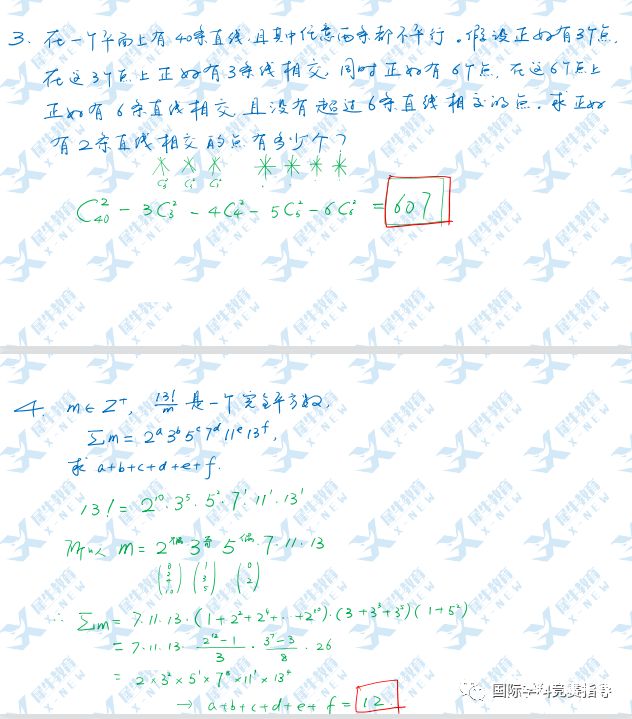 3. 在一个平面上有40条直线,且其中任意两条都不平行。假设正好有3个点,
在这3个点上正好有3条线相交,同时正好有6个点,在这6个点上
正好有6条直线相交,且没有超过6条直线相交的点。求正好
有2条直线相交的点有多少个?
C₃² C₃² C₃²
C₄₀² - 3C₃² - 4C₄² - 5C₅² - 6C₆² = 607
4. m∈Z⁺, 13!/m 是一个完全平方数,
∑m = 2ᵃ3ᵇ5ᶜ7ᵈ11ᵉ13ᶠ,
求 a+b+c+d+e+f.
13! = 2¹⁰·3⁵·5²·7¹·11¹·13¹
所以 m = 2^偶 3^奇 5^偶·7·11·13
(0 2 4 ⋮ 10) (1 3 5) (0 2)
∴ ∑m = 7·11·13·(1+2²+2⁴+…+2¹⁰)·(3+3³+3⁵)(1+5²)
= 7·11·13·(2¹²-1)/3·(3⁷-3)/8·26
= 2×3²×5¹×7³×11¹×13⁴
→ a+b+c+d+e+f = 12
犀牛教育
X-NEW